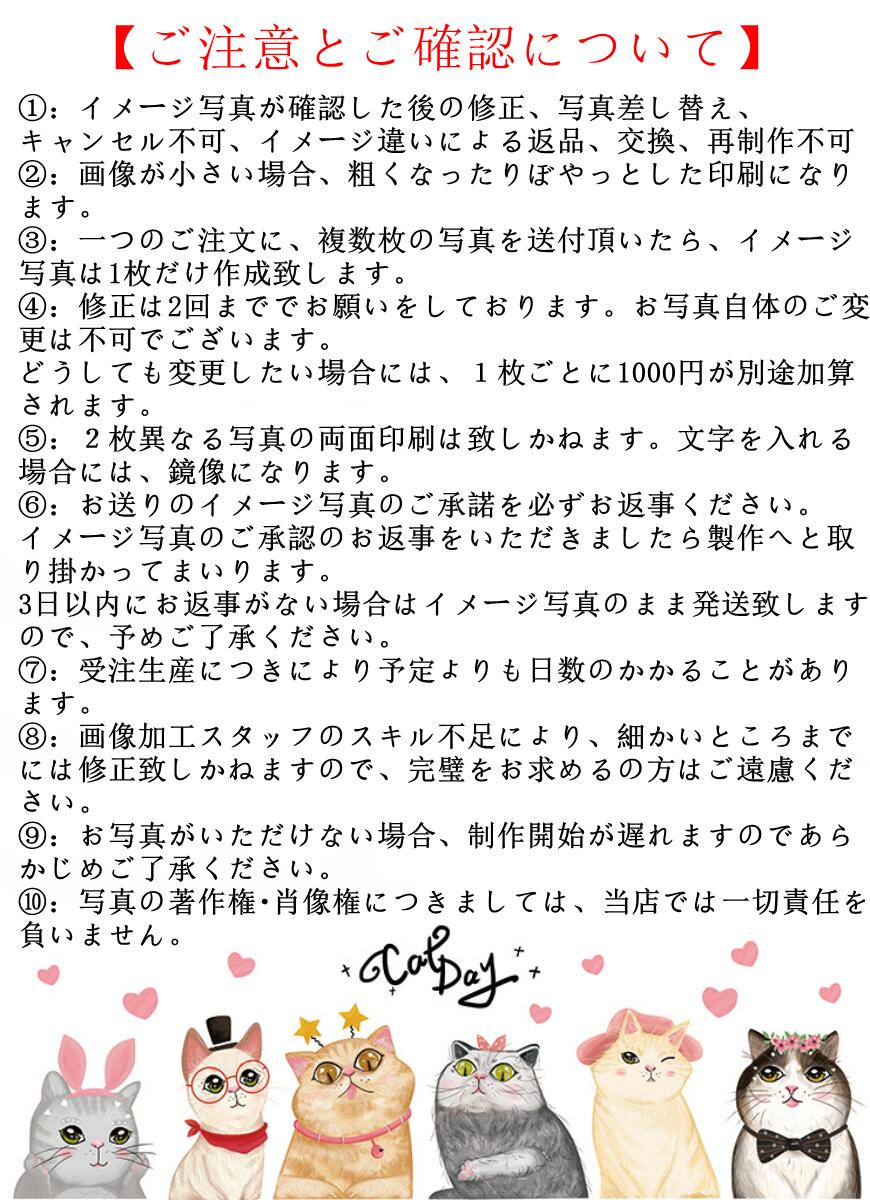 【ご注意とご確認について】
①：イメージ写真が確認した後の修正、写真差し替え、
キャンセル不可、イメージ違いによる返品、交換、再制作不可
②：画像が小さい場合、粗くなったりぼやっとした印刷になり
ます。
③：一つのご注文に、複数枚の写真を送付頂いたら、イメージ
写真は1枚だけ作成致します。
④：修正は2回まででお願いをしております。お写真自体のご変
更は不可でございます。
どうしても変更したい場合には、１枚ごとに1000円が別途加算
されます。
⑤：２枚異なる写真の両面印刷は致しかねます。文字を入れる
場合には、鏡像になります。
⑥：お送りのイメージ写真のご承諾を必ずお返事ください。
イメージ写真のご承認のお返事をいただきましたら製作へと取
り掛かってまいります。
3日以内にお返事がない場合はイメージ写真のまま発送致します
ので、予めご了承ください。
⑦：受注生産につきにより予定よりも日数のかかることがあり
ます。
⑧：画像加工スタッフのスキル不足により、細かいところまで
には修正致しかねますので、完璧をお求めるの方はご遠慮くだ
さい。
⑨：お写真がいただけない場合、制作開始が遅れますのであら
かじめご了承ください。
⑩：写真の著作権・肖像権につきましては、当店では一切責任を
負いません。
Cat Day